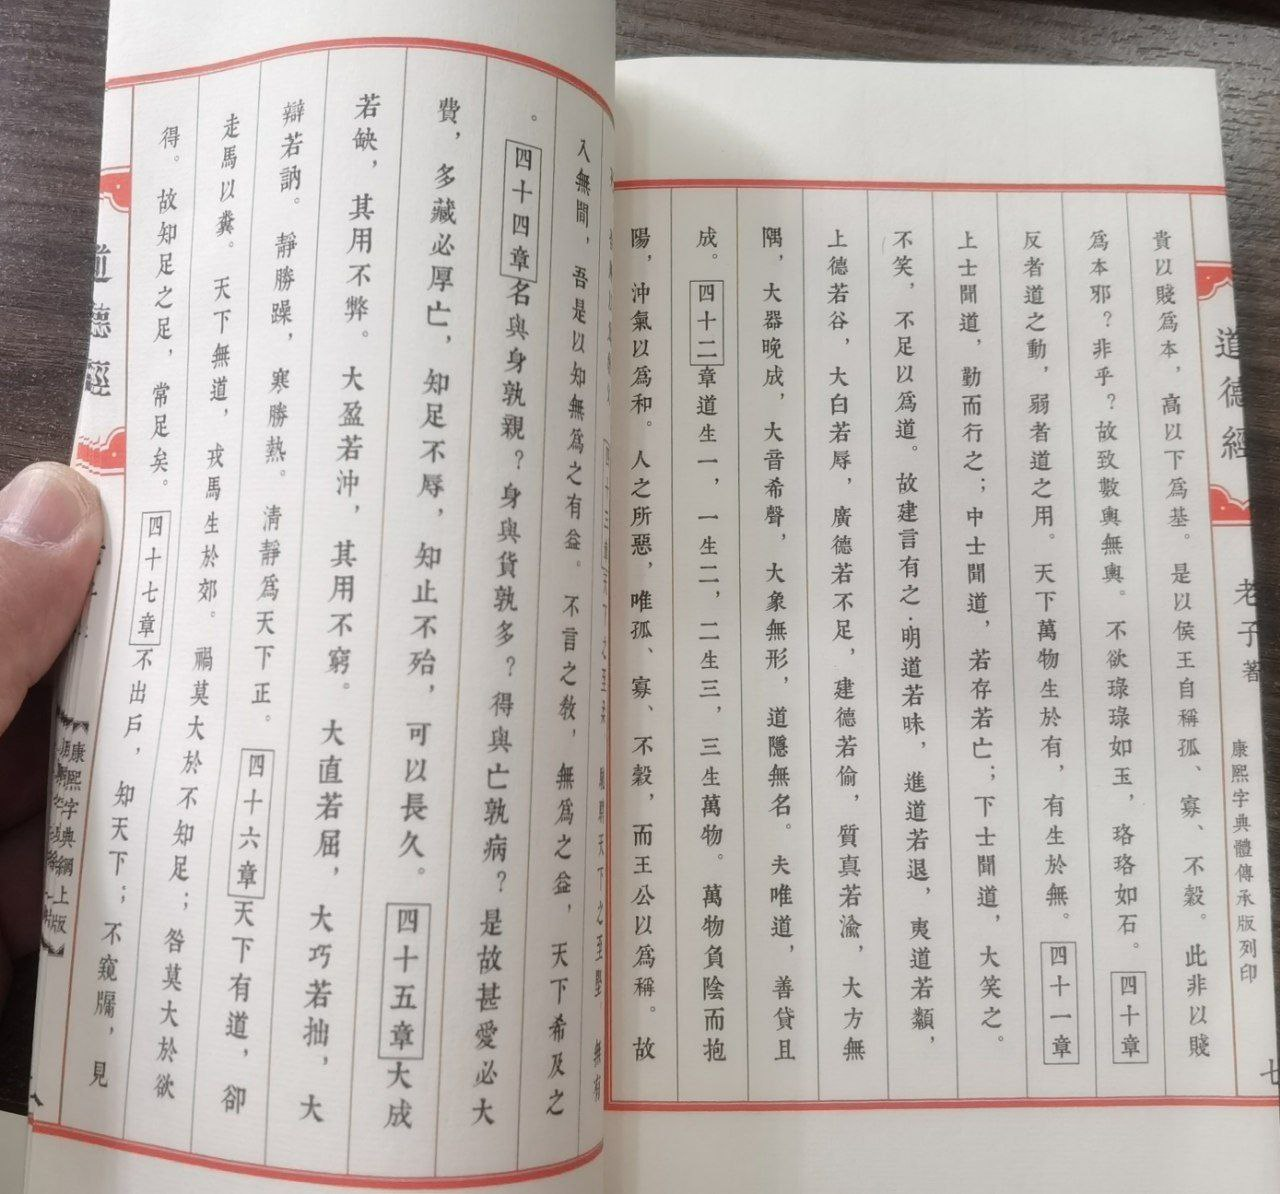 道德經
老子著
康熙字典體傳承版列印
七
貴以賤爲本，高以下爲基。是以侯王自稱孤、寡、不穀。此非以賤
爲本邪？非乎？故致數輿無輿。不欲琭琭如玉，珞珞如石。四十章
反者道之動，弱者道之用。天下萬物生於有，有生於無。四十一章
上士聞道，勤而行之；中士聞道，若存若亡；下士聞道，大笑之。
不笑，不足以爲道。故建言有之：明道若昧，進道若退，夷道若纇，
上德若谷，大白若辱，廣德若不足，建德若偷，質真若渝，大方無
隅，大器晚成，大音希聲，大象無形，道隱無名。夫唯道，善貸且
成。四十二章道生一，一生二，二生三，三生萬物。萬物負陰而抱
陽，沖氣以爲和。人之所惡，唯孤、寡、不穀，而王公以爲稱。故
四十三章天下之至
天下之至堅。無有
入無間，吾是以知無爲之有益。不言之教，無爲之益，天下希及之
。四十四章名與身孰親？身與貨孰多？得與亡孰病？是故甚愛必大
費，多藏必厚亡，知足不辱，知止不殆，可以長久。四十五章大成
若缺，其用不弊。大盈若沖，其用不窮。大直若屈，大巧若拙，大
辯若訥。靜勝躁，寒勝熱。清靜爲天下正。四十六章天下有道，卻
走馬以糞。天下無道，戎馬生於郊。禍莫大於不知足；咎莫大於欲
得。故知足之足，常足矣。四十七章不出戶，知天下；不窺牖，見
道德經
康熙字典網上版